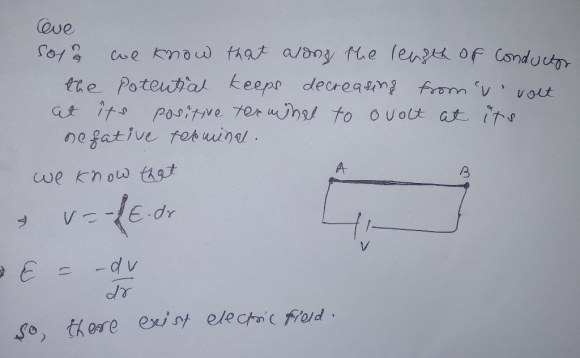 Sol we know that along the length of conductor
the Potential keeps decreasing from 'v' volt
at its positive terminal to 0 volt at its
negative terminal.
we know that
V = -∫E.dr
E = -dv/dr
So, there exist electric field.
A B
V